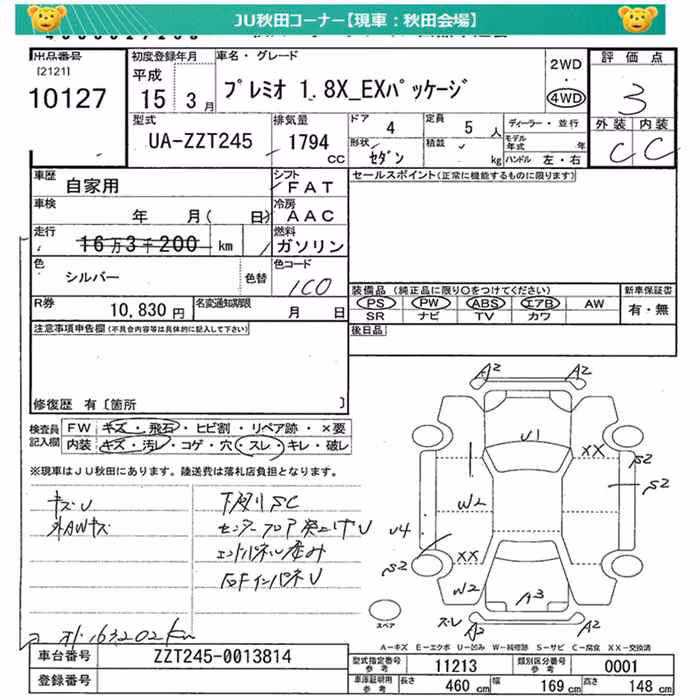 JU秋田コーナー【現車：秋田会場】
出品番号
[2121]
10127
初度登録年月
平成
15 年 3 月
車名・グレード
プレミオ 1.8X_EXパッケージ
2WD
4WD
評価点
3
外装 内装
C C
型式
UA-ZZT245
排気量
1794 CC
ドア 4
定員 5 人
形状 セダン
積載 kg
ディーラー・並行
モデル年式 年
ハンドル 左・右
車歴
自家用
シフト
FAT
車検
年 月( 日)
冷房
AAC
走行
16万3千200 km
燃料
ガソリン
色
シルバー
色替
色コード
1C0
R券
10,830 円
名変通知期限
月 日
セールスポイント(正常に機能するものに限ります)
装備品 (純正品に限り○をつけてください)
PS PW ABS エアB AW
SR ナビ TV カワ
新車保証書
有・無
後日品
注意事項申告欄(不具合内容等は具体的に記入して下さい)
修復歴 有 [箇所 ]
検査員記入欄
FW キズ・飛石・ヒビ割・リペア跡・×要
内装 キズ・汚レ・コゲ・穴・スレ・キレ・破レ
※現車はJU秋田にあります。陸送費は落札店負担となります。
キズU
外AWキズ
下廻りSC
センターフロア突上げU
エンドパネル歪み
163202km
A2 A2
U1
XX
S2
S2
W2
U4
XX
S2
W2
A3
スペア
A2 A2
A-キズ E-エクボ U-凹み W-補修跡 S-サビ C-腐食 XX-交換済
車台番号 ZZT245-0013814
登録番号
型式指定番号 参考 11213
類別区分番号 参考 0001
車庫証明用 参考 長さ 460 cm 幅 169 cm 高さ 148 cm